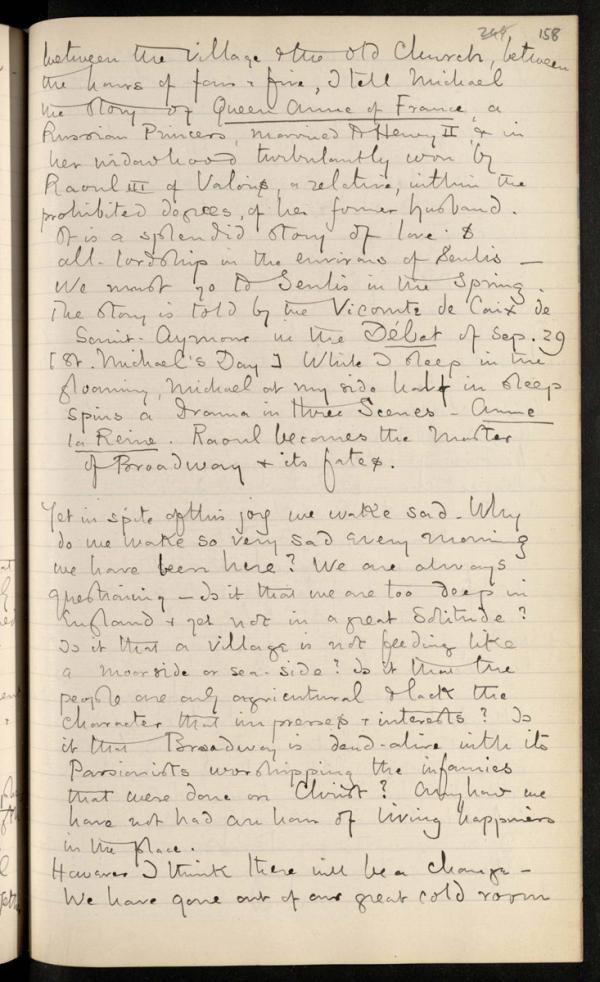 248 158
between the village & the old Church, between
the hours of four & five, I tell Michael
the story of Queen Anne of France, a
Russian Princess, married to Henry II, & in
her widowhood turbulantly won by
Raoul III of Valois, a relative, within the
prohibited degrees, of her former husband.
It is a splendid story of love &
all-lordship in the environs of Senlis —
We must go to Senlis in the Spring.
The story is told by the Vicomte de Caix de
Saint-Aymour in the Débat of Sep. 29
[St. Michael's Day] While I sleep in the
gloaming, Michael at my side half in sleep
spins a Drama in three Scenes – Anne
la Reine. Raoul becomes the Master
of Broadway & its fates.
Yet in spite of this joy we wake sad. Why
do we wake so very sad every morning
we have been here? We are always
questioning – Is it that we are too deep in
England & yet not in a great Solitude?
Is it that a village is not feeding like
a moorside or sea-side? Is it that the
people are only agricultural & lack the
character that impresses & interests? Is
it that Broadway is dead-alive with its
Passionists worshipping the infamies
that were done on Christ? Anyhow we
have not had an hour of living happiness
in the place.
However I think there will be a change –
We have gone out of our great cold room